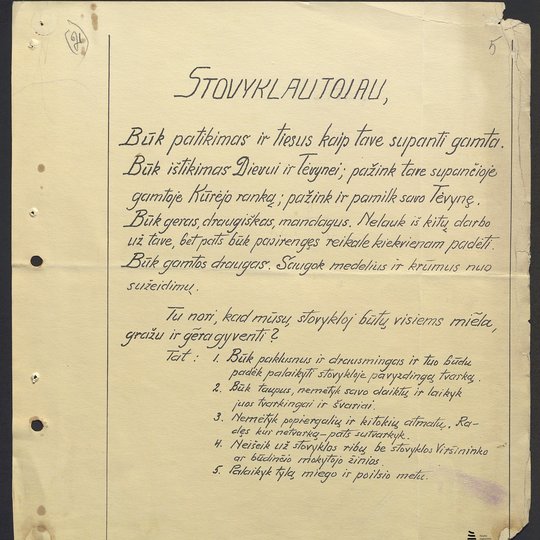 24
5
STOVYKLAUTOJAU,
Būk patikimas ir tiesus kaip tave supanti gamta.
Būk ištikimas Dievui ir Tėvynei; pažink tave supančioje
gamtoje Kūrėjo ranką; pažink ir pamilk savo Tėvynę.
Būk geras, draugiškas, mandagus. Nelauk iš kitų darbo
už tave, bet pats būk pasirengęs reikale kiekvienam padėti.
Būk gamtos draugas. Saugok medelius ir krūmus nuo
sužeidimų.
Tu nori, kad mūsų stovykloj būtų visiems miela,
gražu ir gera gyventi?
Tat: 1. Būk paklusnus ir drausmingas ir tuo būdu
padėk palaikyti stovykloje pavyzdingą tvarką.
2. Būk taupus, nemėtyk savo daiktų ir laikyk
juos tvarkingai ir švariai.
3. Nemėtyk popiergalių ir kitokių atmatų. Ra-
dęs kur netvarką - pats sutvarkyk.
4. Neišeik už stovyklos ribų be stovyklos Viršininko
ar budinčio mokytojo žinios.
5. Palaikyk tylą miego ir poilsio metu.